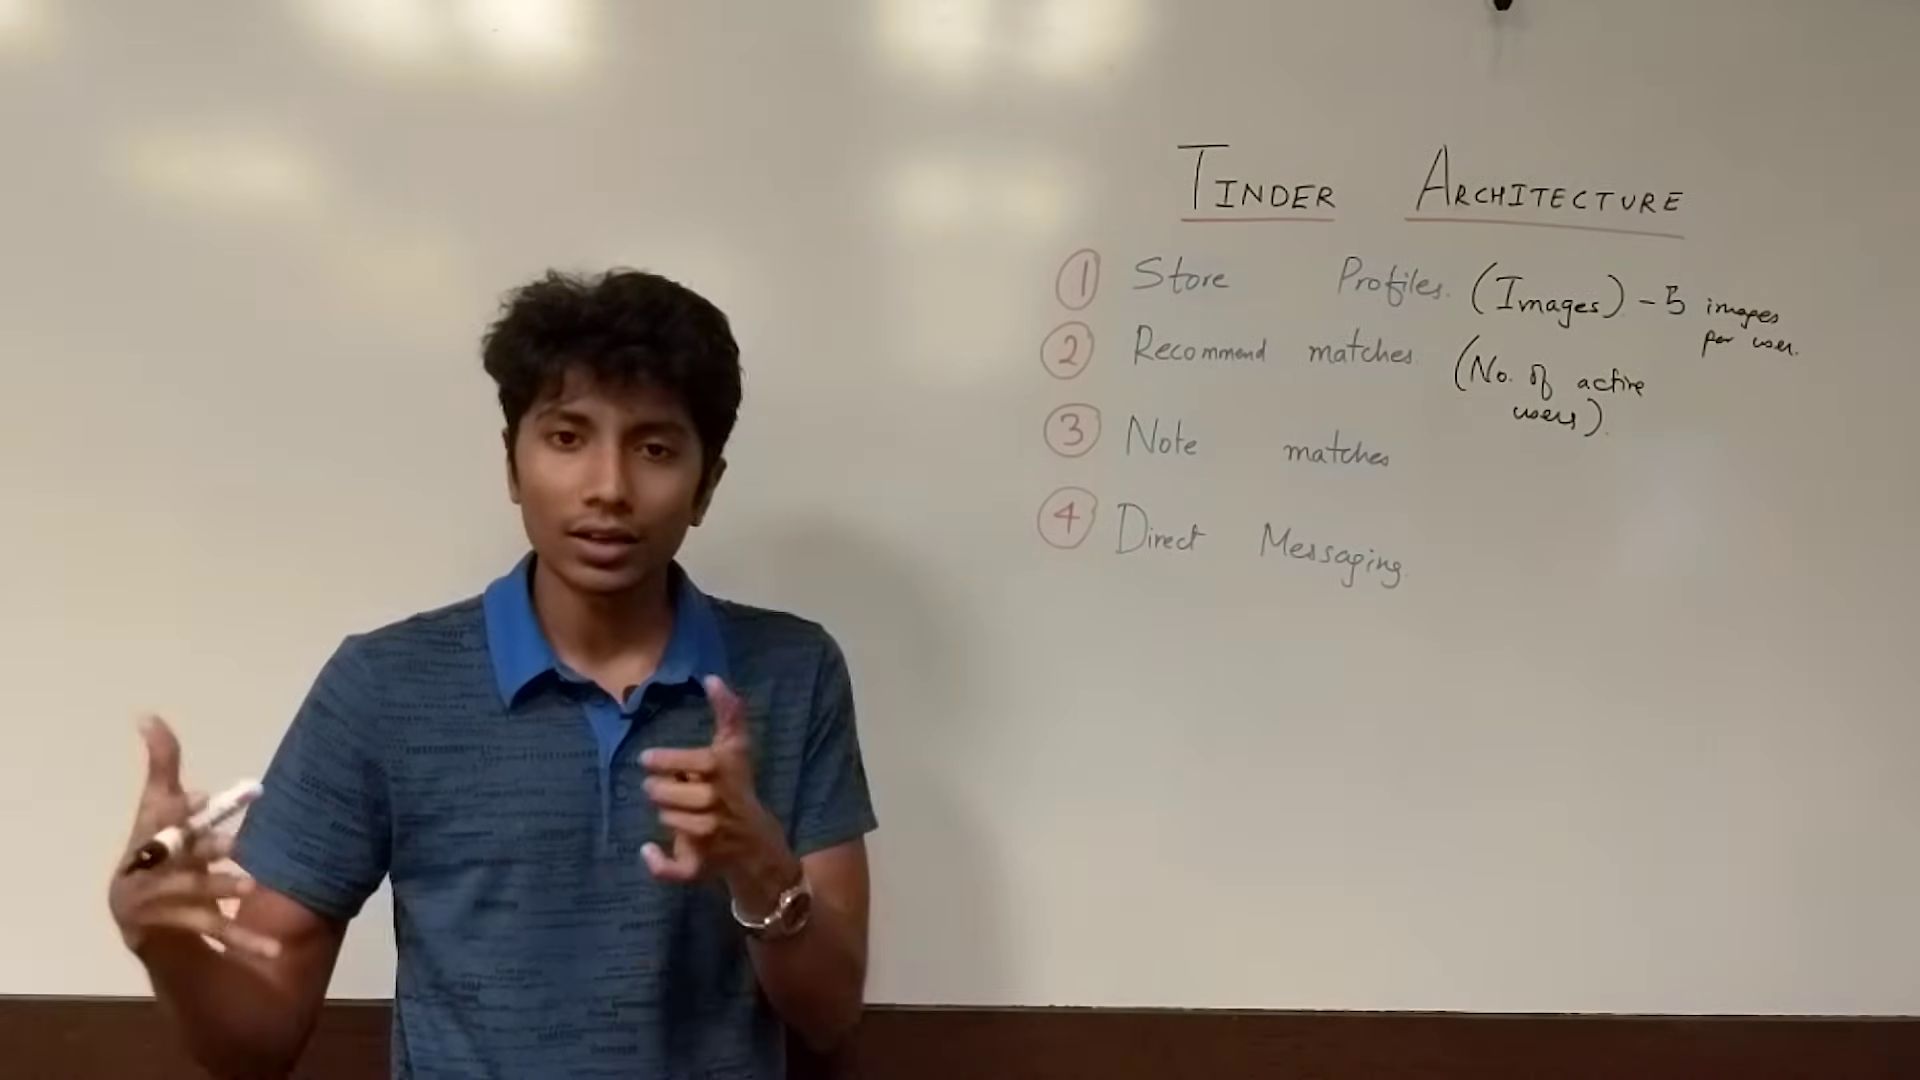 TINDER ARCHITECTURE
1 Store Profiles. (Images) - 5 images
per user.
2 Recommend matches. (No. of active
users).
3 Note matches
4 Direct Messaging.